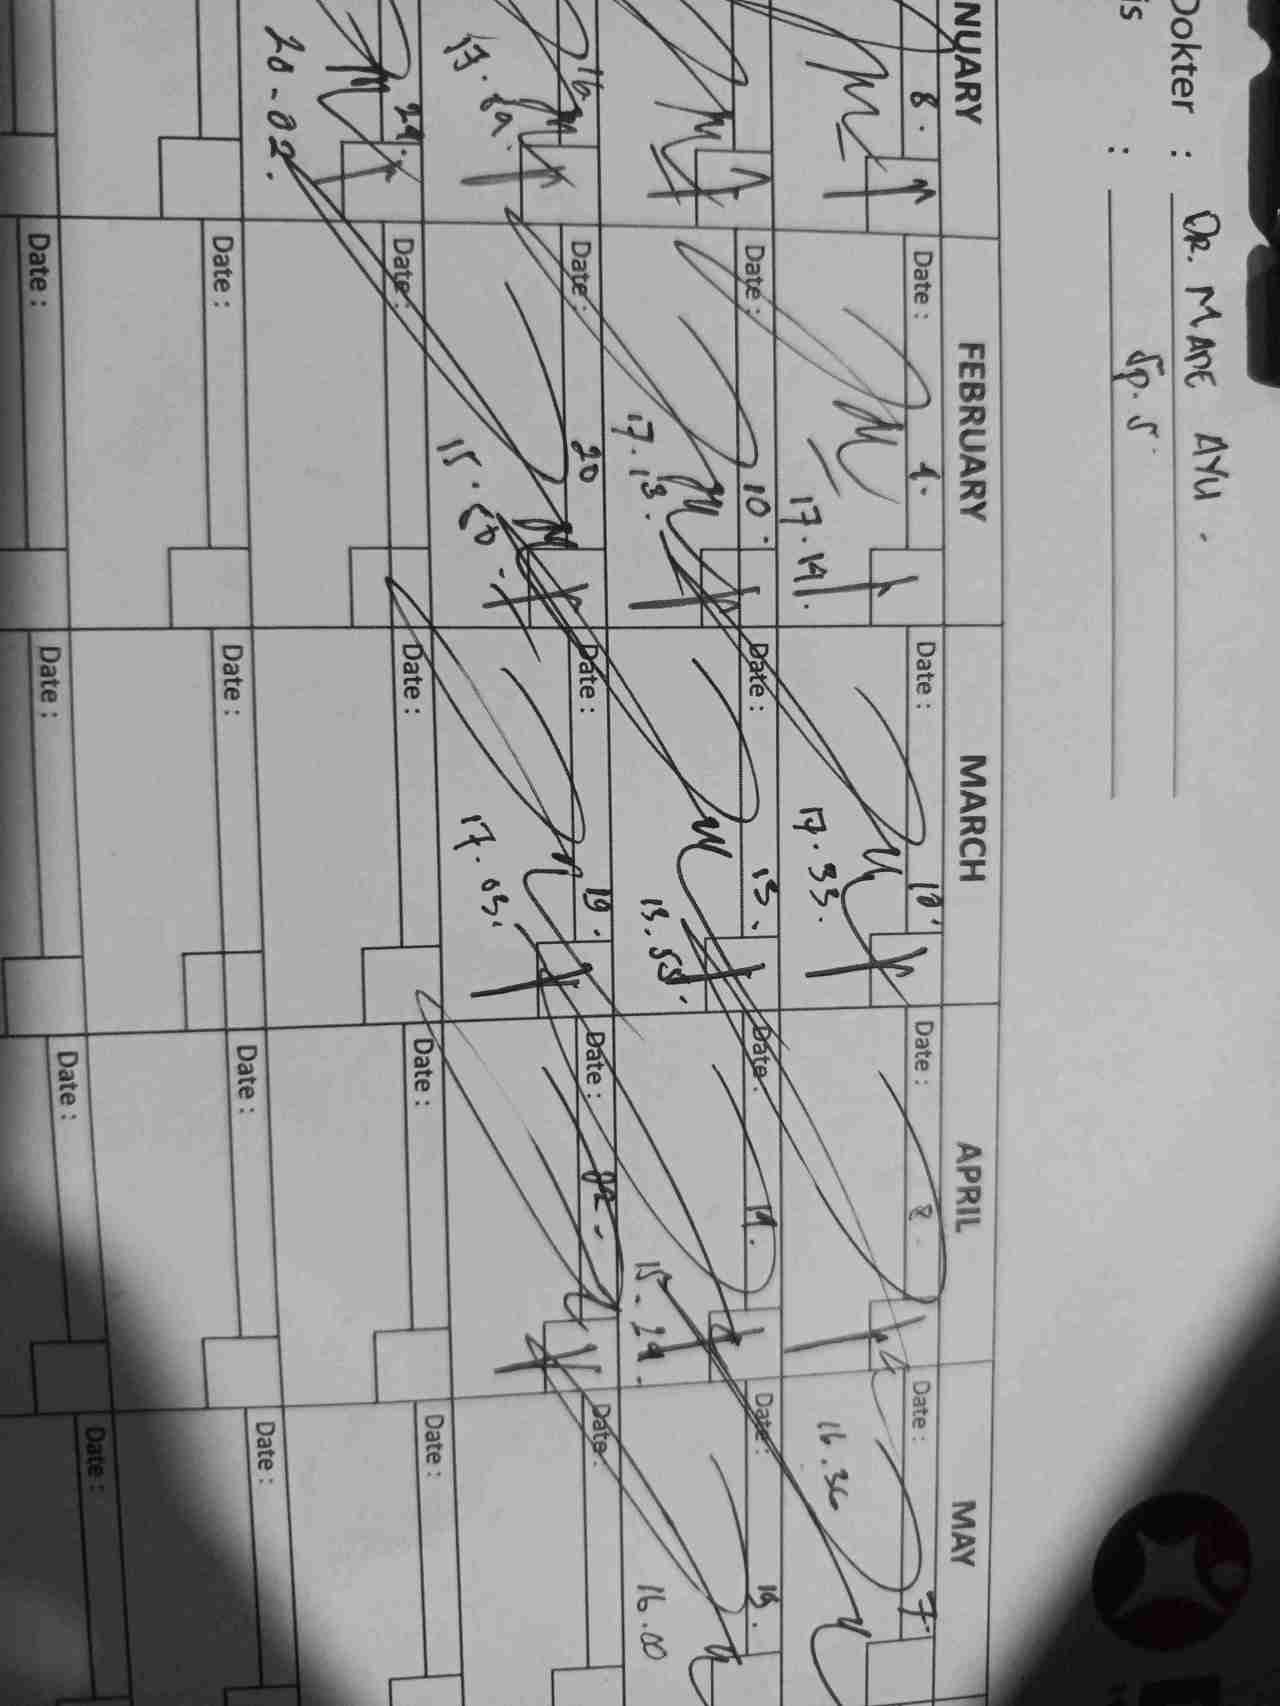 Dokter : DR. MADE AYU.
is : Sp. S
NUARY FEBRUARY MARCH APRIL MAY
8. Date : 4. Date : 10. Date : 8 Date : 7.
17.14. 17.33. 16.36
Date : 10. Date : 13. Date : 14. Date : 16.
17.13. 13.55. 15.24. 16.00
16 Date : 20 Date : 19. Date : 22. Date :
15.50. 17.03.
24. Date : Date : Date : Date :
20-02.
Date : Date : Date : Date :
Date : Date : Date : Date :